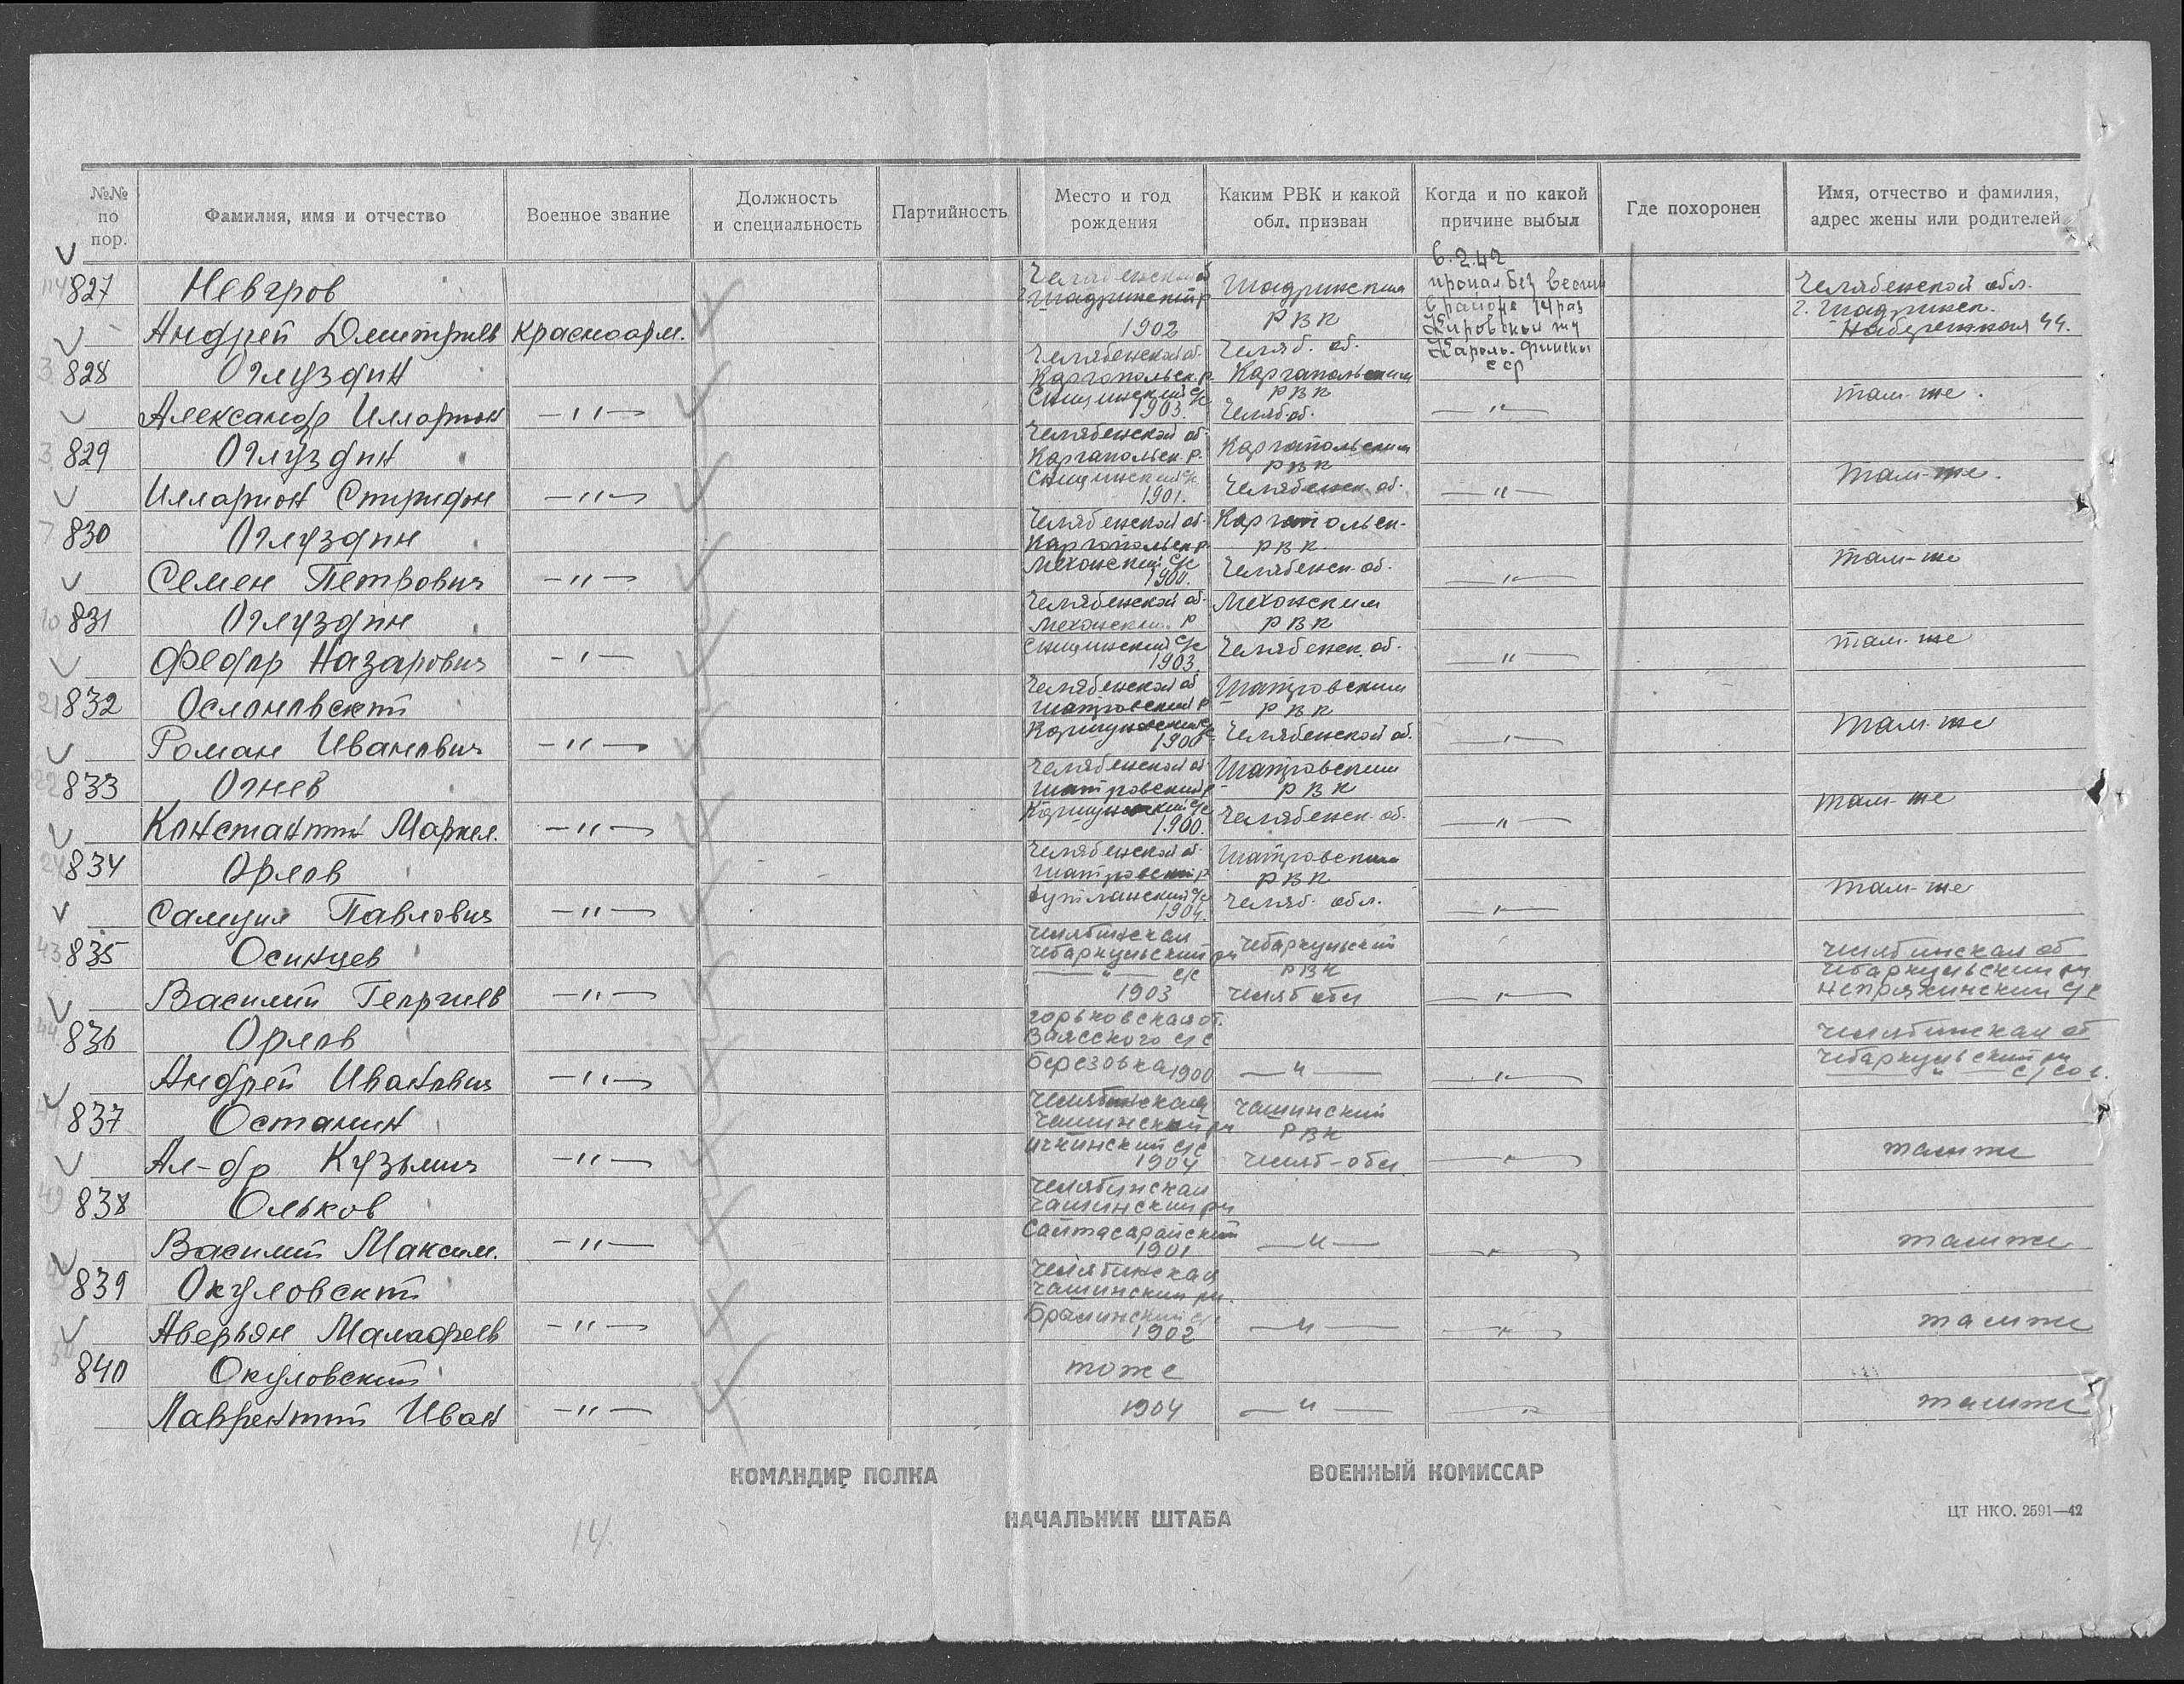 №№ по пор.
Фамилия, имя и отчество
Военное звание
Должность и специальность
Партийность
Место и год рождения
Каким РВК и какой обл. призван
Когда и по какой причине выбыл
Где похоронен
Имя, отчество и фамилия, адрес жены или родителей
827 Невгров
Андрей Дмитриев Красноарм.
Челябенской об
г. Шадринский р
1902
Шадринским
РВК
6.2.42
пропал без вести
в районе
Кировской жд
Карело-Финской
ССР
Челябенской обл.
г. Шадринск.
Набережная 44.
828 Оглуздин
Александр Илларион —"—
Челябенской об.
Каргопольск. р.
с/с
1903.
Челяб. об.
Каргапольским
РВК
Челяб об.
—"—
там-же.
829 Оглуздин
Илларион Спиридон —"—
Челябенской об.
Каргапольск. р.
с/с
1901.
Каргапольским
РВК
Челябенск. об.
—"—
Там-же.
830 Оглуздин
Семен Петрович —"—
Челябенской об.
Каргопольск р.
Мехонский с/с
1900.
Каргапольск-
РВК.
Челябенск. об.
—"—
там-же
831 Оглуздин
Федор Назарович —"—
Челябенской об.
Мехонский р
с/с
1903.
Мехонским
РВК
Челябенск. об.
—"—
там-же
832 Ослоновский
Роман Иванович —"—
Челябенской об
Шатровский р
с/с
1900
Шатровским
РВК
Челябенской об.
—"—
Там-же
833 Огнев
Константин Маркел. —"—
Челябенской об
Шатровский р.
с/с
1900.
Шатровским
РВК
Челябенск. об.
—"—
там-же
834 Орлов
Самуил Павлович —"—
Челябенской об.
Шатровский р
с/с
1904.
Шатровским
РВК
Челяб. обл.
—"—
там-же
835 Осинцев
Василий Георгиев —"—
Челябинская
Чебаркульский рн
—"— с/с
1903
Чебаркульский
РВК
Челяб обл
—"—
Челябинская об
Чебаркульский рн
Непряхинский с/с
836 Орлов
Андрей Иванович —"—
Горьковская об.
с/с
Березовка 1900
—"—
—"—
Челябинская об
Чебаркульский рн
—"— с/сов.
837 Останин
Ал-др Кузьмич —"—
Челябинская
Чашинский рн
Ичкинский с/с
1904
Чашинский
РВК
Челяб-обл.
—"—
тамже
838 Ольков
Василий Максим. —"—
Челябинская
Чашинский рн
Сайтосарайский
1901.
—"—
—"—
тамже
839 Окуловский
Аверьян Малафеев —"—
Челябинская
Чашинский рн.
с/с
1902
—"—
—"—
тамже
840 Окуловский
Лаврентий Иван —"—
тоже
1904
—"—
—"—
тамже
КОМАНДИР ПОЛКА
ВОЕННЫЙ КОМИССАР
НАЧАЛЬНИК ШТАБА
ЦТ НКО. 2591—42
14.